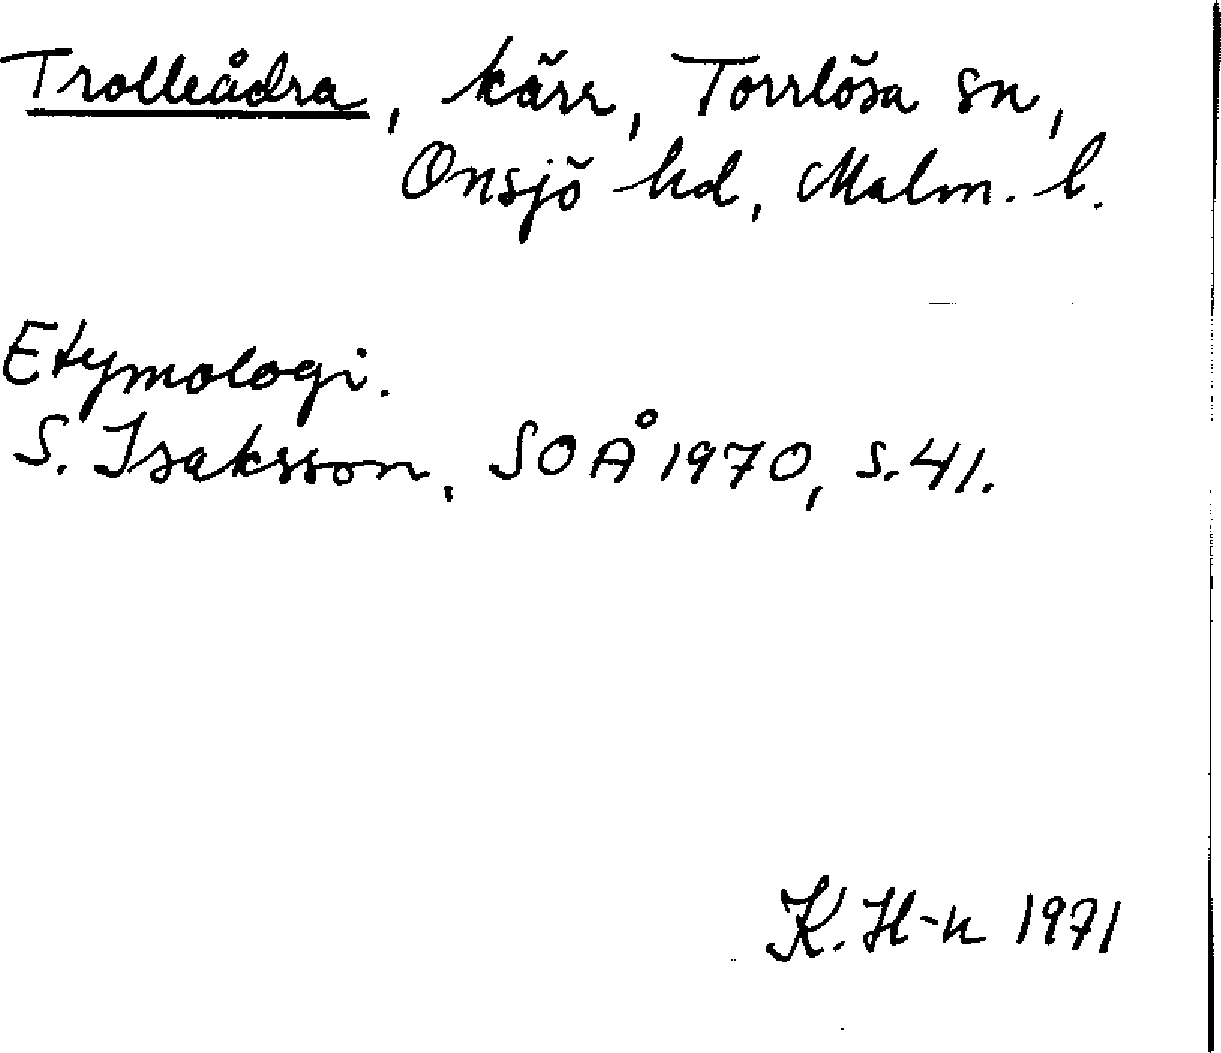 Trolleådra, kärr, Torrlösa sn,
Onsjö hd, Malm. l.
Etymologi.
S. Isaksson, SOÅ 1970, s. 41.
K. H-n 1971